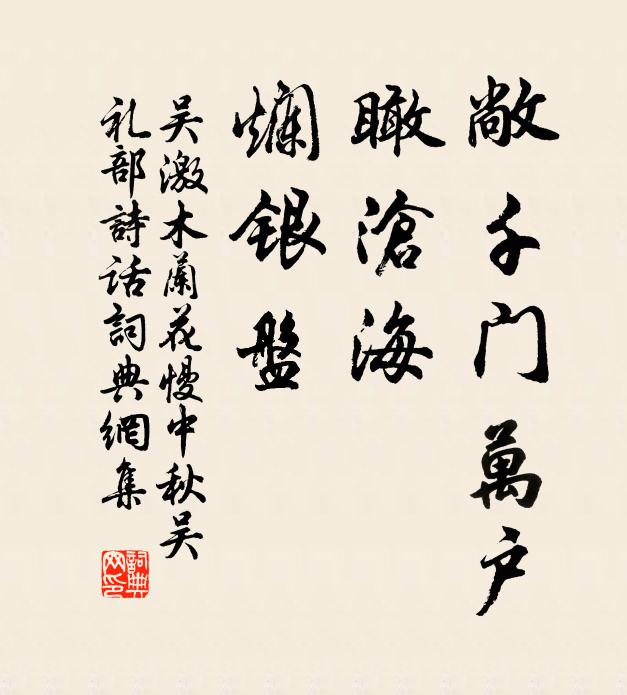 敞千門萬户
瞰滄海
爛銀盤
吴激木蘭花慢中秋吴
礼部詩话詞典網集
詞典
网印